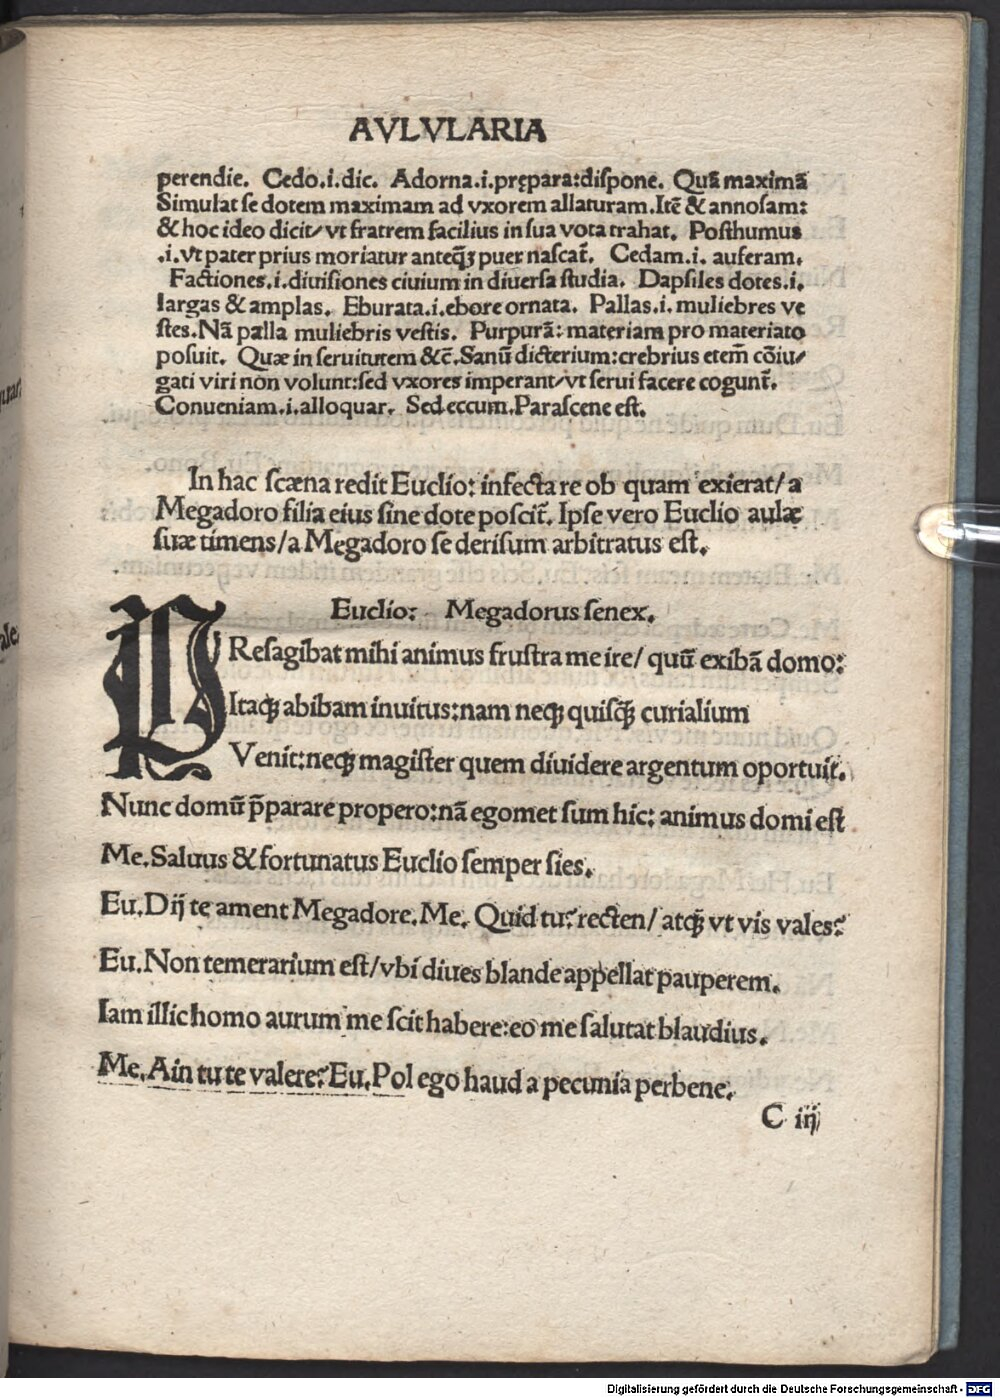 AVLVLARIA
perendie. Cedo.i.dic. Adorna.i.prępara:diſpone. Quã maximã
Simulat ſe dotem maximam ad vxorem allaturam.Itẽ & annoſam:
& hoc ideo dicit/ vt fratrem facilius in ſua vota trahat. Poſthumus
.i.vt pater prius moriatur anteqꝫ puer naſcat᷑. Cedam.i. auferam.
Factiones.i.diuiſiones ciuium in diuerſa ſtudia. Dapſiles dotes.i.
largas & amplas. Eburata.i.ebore ornata. Pallas.i.muliebres ve
ſtes.Nã palla muliebris veſtis. Purpurã: materiam pro materiato
poſuit. Quæ in ſeruitutem &c̃.Sanũ dicterium:crebrius etem̃ cõiu/
gati viri non volunt:ſed vxores imperant/vt ſerui facere cogunt᷑.
Conueniam.i.alloquar. Sed eccum.Paraſcene eſt.
In hac ſcæna redit Euclio: infecta re ob quam exierat/ a
Megadoro filia eius ſine dote poſcit᷑. Ipſe vero Euclio aulæ
ſuæ timens/a Megadoro ſe deriſum arbitratus eſt.
Euclio: Megadorus ſenex.
PReſagibat mihi animus fruſtra me ire/ quũ exibã domo:
Itaqꝫ abibam inuitus:nam neqꝫ quiſqꝫ curialium
Venit:neqꝫ magiſter quem diuidere argentum oportuit.
Nunc domũ p̃parare propero:nã egomet ſum hic: animus domi eſt
Me.Saluus & fortunatus Euclio ſemper ſies.
Eu.Dij te ament Megadore.Me. Quid tu? recten/ atqꝫ vt vis vales?
Eu.Non temerarium eſt/vbi diues blande appellat pauperem.
Iam illic homo aurum me ſcit habere:eo me ſalutat blaudius.
Me.Ain tu te valere? Eu.Pol ego haud a pecunia perbene.
C iij
Digitalisierung gefördert durch die Deutsche Forschungsgemeinschaft - DFG